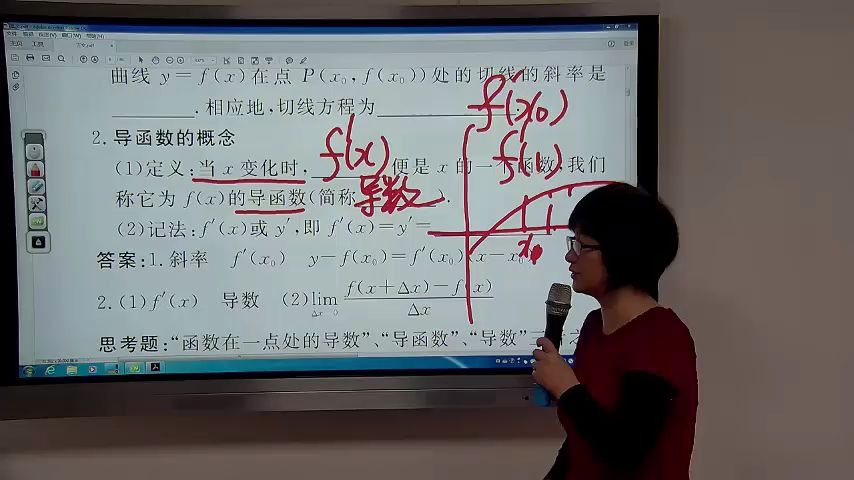 曲线 y=f(x)在点 P(x₀,f(x₀))处的切线的斜率是
________.相应地,切线方程为________________
f'(x0)
2.导函数的概念
f'(1)
(1)定义:当 x 变化时, f'(x) 便是 x 的一个函数,我们
称它为 f(x)的导函数(简称 导数 ).
(2)记法:f'(x)或 y',即 f'(x)=y'=
x0
答案:1.斜率 f'(x₀) y-f(x₀)=f'(x₀)(x-x₀)
2.(1)f'(x) 导数 (2)lim Δx 0 f(x+Δx)-f(x) / Δx
思考题:“函数在一点处的导数”、“导函数”、“导数”三